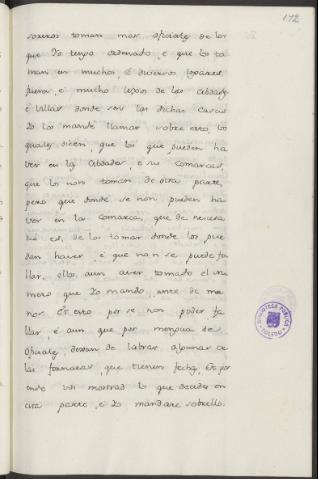 172
toman mas oficiales de los
que Yo tengo ordenado, e que los to
man en muchos, é diversos logares,
fuera, é mucho lexos de las Cibdades
é Villas donde son las dichas Casas
Yo los mandé llamar sobre esto, los
quales dicen, que los que pueden ha
ver en las Cibdades, e sus comarcas,
que los non toman de otra parte,
pero que donde se non pueden ha
ver en las comarcas, que de necesa
rio es, de los tomar donde los pue
dan haver, é que non se puede fa
llar, ellos aun aver tomado el nu
mero que Yo mando, ante de me
nos. Et esto por se non poder fa
llar, é aun que por mengua de
oficiales, dexan de labrar algunas de
las fornazas, que tienen fechas, Et por
ende vos mostrad lo que decides en
esta parte, é Yo mandaré sobrello.
BIBLIOTECA PUBLICA
TOLEDO